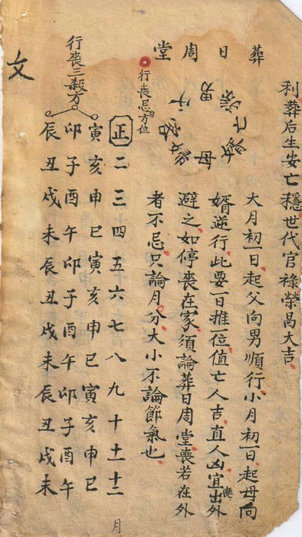 利葬后生安亡穩世代官祿榮昌大吉
葬日周堂
大月初一日起父向男順行小月初日起母向
婿逆行此要一日推一位值亡人吉直人凶宜出外
避之如停喪在家須論葬日周堂喪若在外
者不忌只論月分大小不論節氣也
父
男
母
行喪忌方位
行喪三殺方
正二三四五六七八九十十一十二月
寅亥申巳寅亥申巳寅亥申巳
卯子酉午卯子酉午卯子酉午
辰丑戌未辰丑戌未辰丑戌未